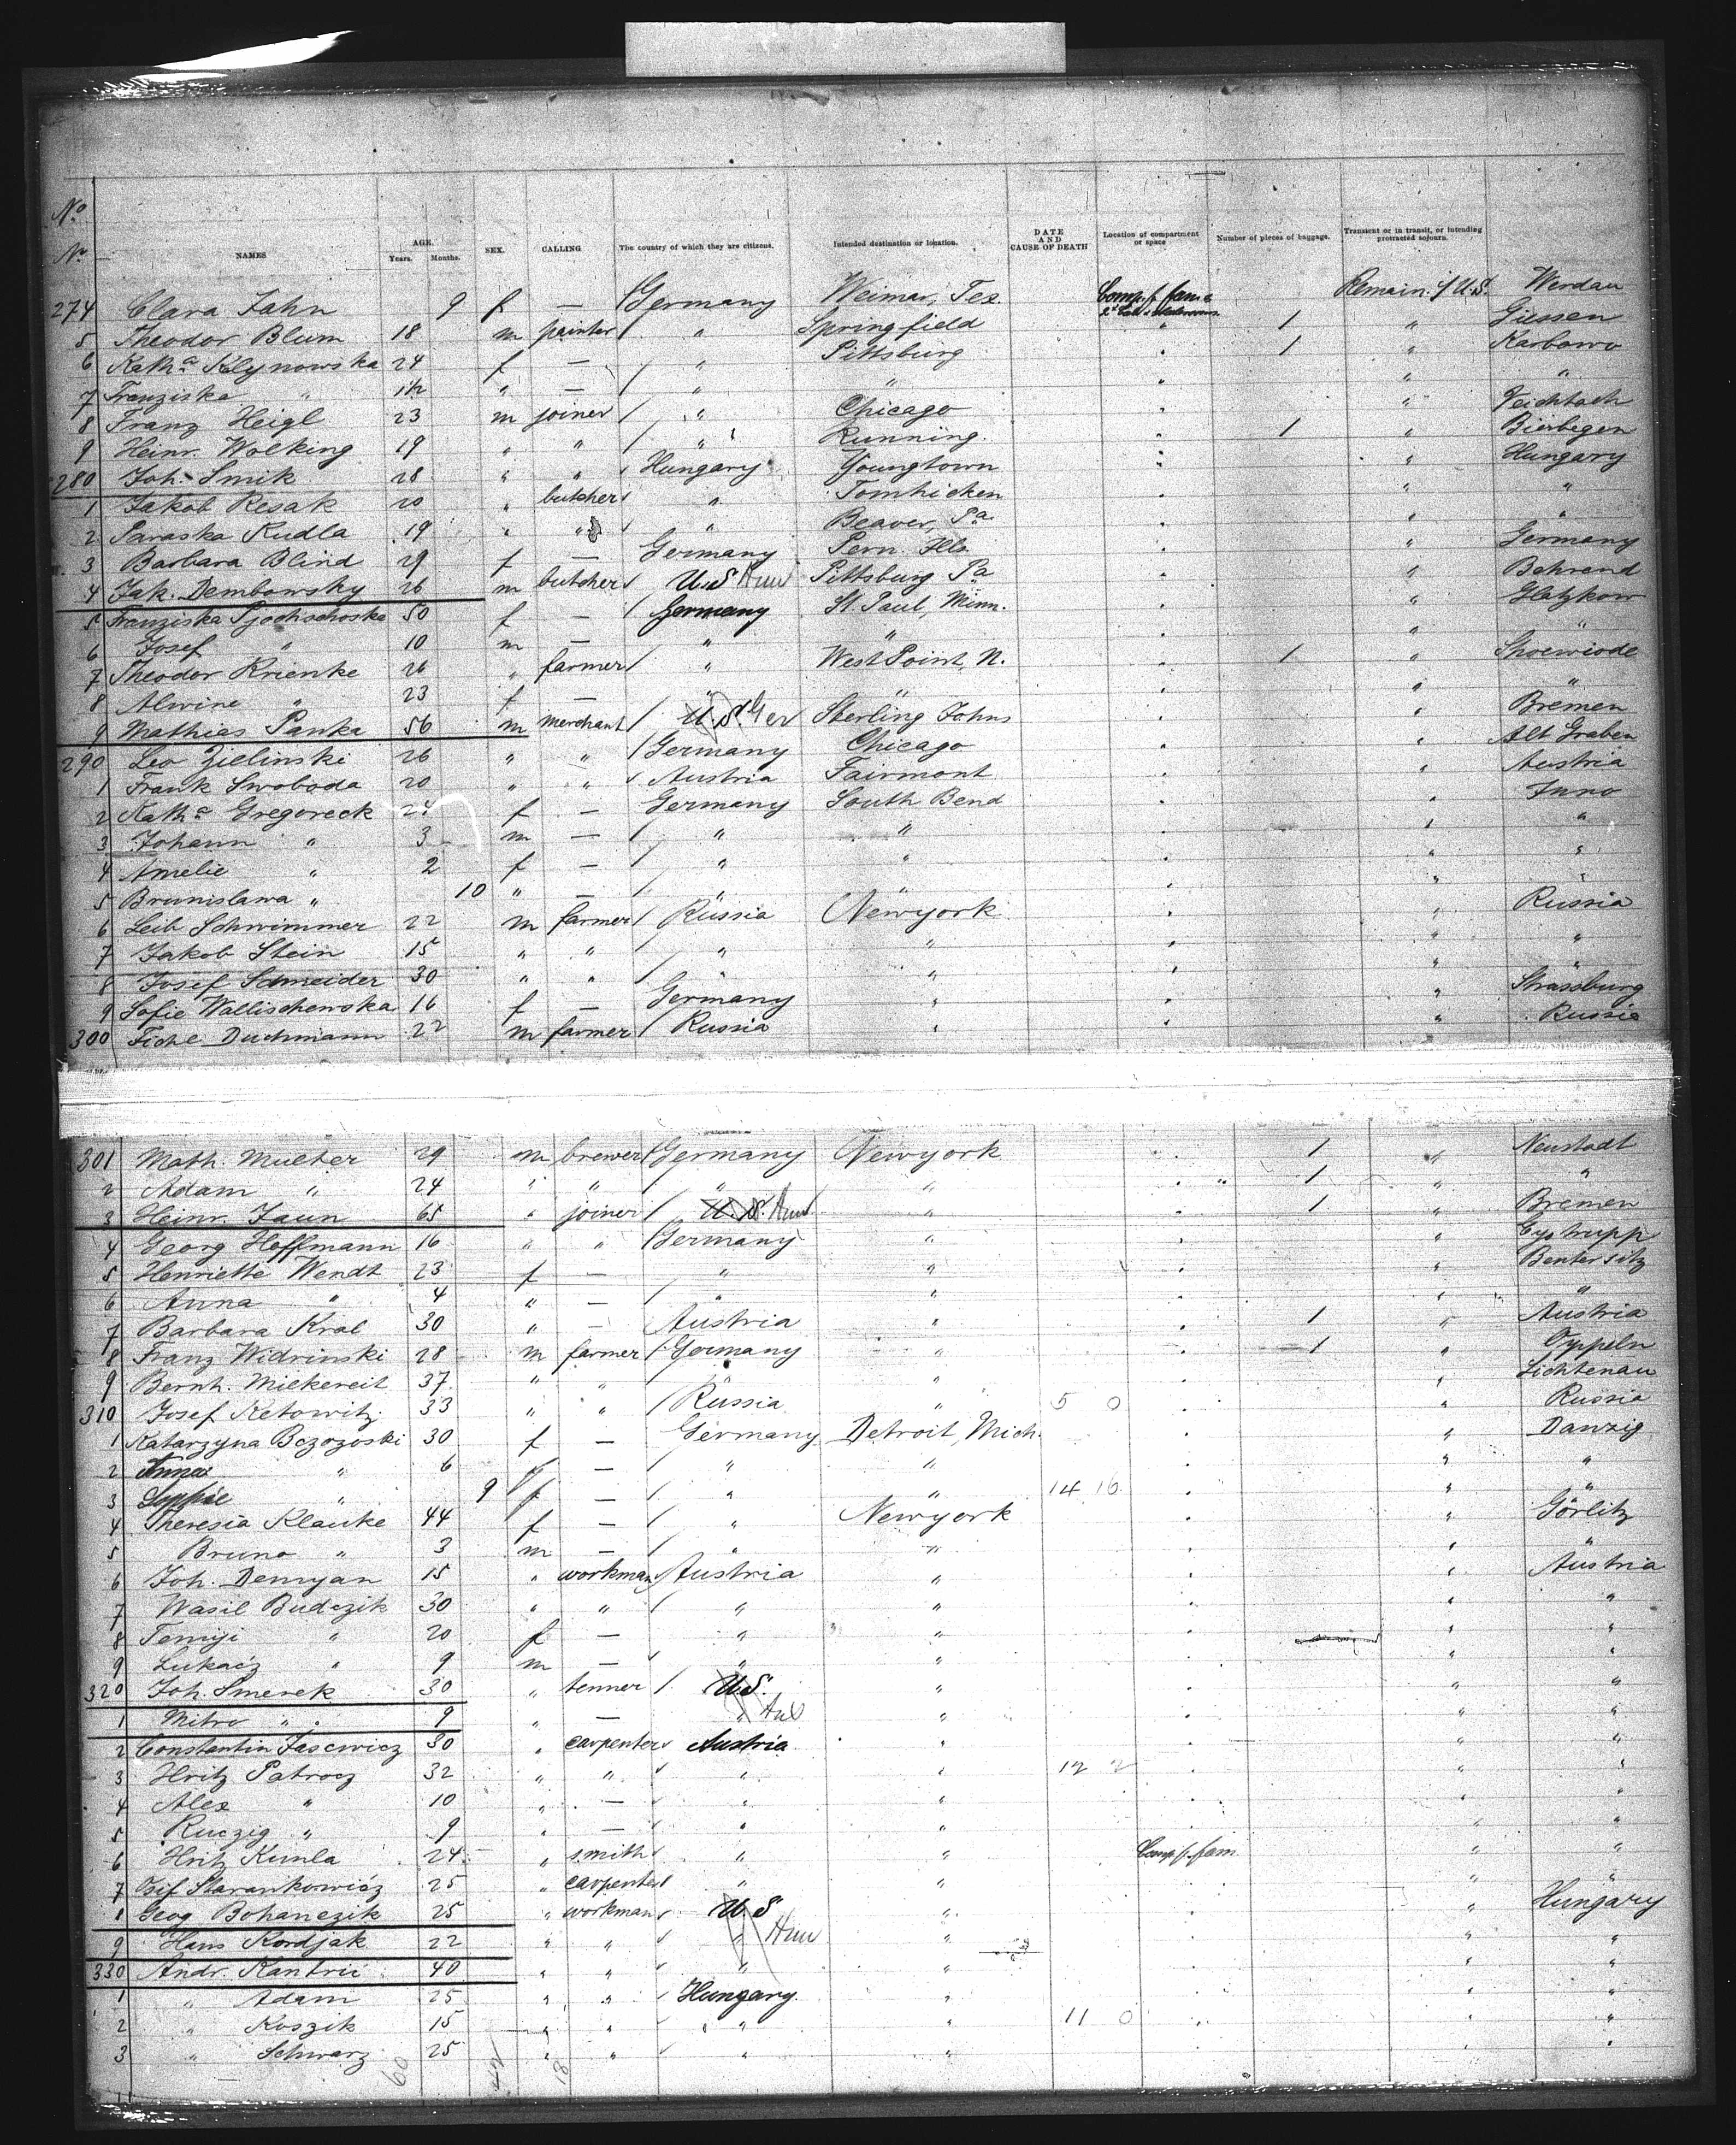 No
Nr. NAMES AGE. Years. Months. SEX. CALLING The country of which they are citizens. Intended destination or location. DATE AND CAUSE OF DEATH Location of compartment or space Number of pieces of baggage. Transient or in transit, or intending protracted sojourn.
274 Clara Jahn 9 f — Germany Weimar, Tex. Comp. f. fam. Remain. i/ U.S. Werdau
5 Theodor Blum 18 m painter " Springfield " 1 " Giessen
6 Katha Klynowska 24 f — " Pittsburg " 1 " Karbowo
7 Franziska " 1½ " — " " " " "
8 Franz Heigl 23 m joiner " Chicago " " Veichtach
9 Heinr. Wolking 19 " " " Running. " 1 " Bierbegen
280 Joh. Smik 28 " " Hungary Youngtown " " Hungary
1 Jakob Resak 20 " butcher " Tomhicken " " "
2 Paraska Kudla 19 " " " Beaver, Pa " " "
3 Barbara Blind 29 f — Germany Peru. Ills. " " Germany
4 Jak. Dembowsky 26 m butcher U.S Hun Pittsburg Pa " " Behrend
5 Franziska Pjochschoska 50 f — Germany St. Paul, Minn. " " Glatzkow
6 Josef " 10 m — " " " " "
7 Theodor Krienke 26 " farmer " West Point, N. " 1 "
8 Alwine " 23 f — " " " " "
9 Mathias Panka 56 m merchant U.S. Ger Sterling Johns " " Bremen
290 Leo Zielinski 26 " " Germany Chicago " " Alt Graben
1 Frank Swoboda 20 " " Austria Fairmont " " Austria
2 Katha Gregoreck 24 f — Germany South Bend " " Inno
3 Johann " 3 m — " " " " "
4 Amelie " 2 f — " " " " "
5 Brunislawa " 10 " — " " " " "
6 Leib Schwimmer 22 m farmer Russia Newyork " " Russia
7 Jakob Stein 15 " " " " " " "
8 Josef Schneider 30 " " " " " " "
9 Sofie Wallischewska 16 f — Germany " " " Strassburg
300 Fichl Duchmann 22 m farmer Russia " " " Russia
301 Math. Multer 29 m brewer Germany Newyork " 1 " Neustadt
2 Adam " 24 " " " " " 1 " "
3 Heinr. Jaun 65 " joiner U.S. Hun " " 1 " Bremen
4 Georg Hoffmann 16 " " Germany " " "
5 Henriette Wendt 23 f — " " " " Bentersitz
6 Anna " 4 " — " " " " "
7 Barbara Kral 30 " — Austria " " 1 " Austria
8 Franz Widrinski 28 m farmer Germany " " 1 " Oppeln
9 Bernh. Milkereit 37 " " " " " " Lichtenau
310 Josef Ketowitz 33 " " Russia " 5 0 " " Russia
1 Katarzyna Bczozoski 30 f — Germany Detroit, Mich. " " Danzig
2 Anna " 6 " — " " " " "
3 Sophie " 9 f — " " 14 16 " " "
4 Theresia Klauke 44 f — " Newyork " " Görlitz
5 Bruno " 3 m — " " " " "
6 Joh. Demyan 15 " workman Austria " " " Austria
7 Wasil Budczik 30 " " " " " " "
8 " 20 f — " " " " "
9 Lukacz " 9 m — " " " " "
320 Joh. Smerek 30 " tenner U.S. " " " "
1 Mitro " 9 " — " " " " "
2 Constantin Jascwicz 30 " carpenter Austria " " " "
3 Hritz Patrocz 32 " " " " 12 2 " " "
4 Alex " 10 " — " " " " "
5 Ruczig " 9 " — " " " " "
6 Hritz Kunla 24 " smith " " Comp. f. fam " "
7 Osif Starankowicz 25 " carpenter " " " "
8 Geog Bohanczik 25 " workman U.S. " " Hungary
9 Hans Kordjak 22 " " " Hun " " "
330 Andr. Kantric 40 " " " " " "
1 " Adam 25 " " Hungary " " "
2 " Koszik 15 " " " " 11 0 " " "
3 " Schwarz 25 " " " " " "
60 42 18